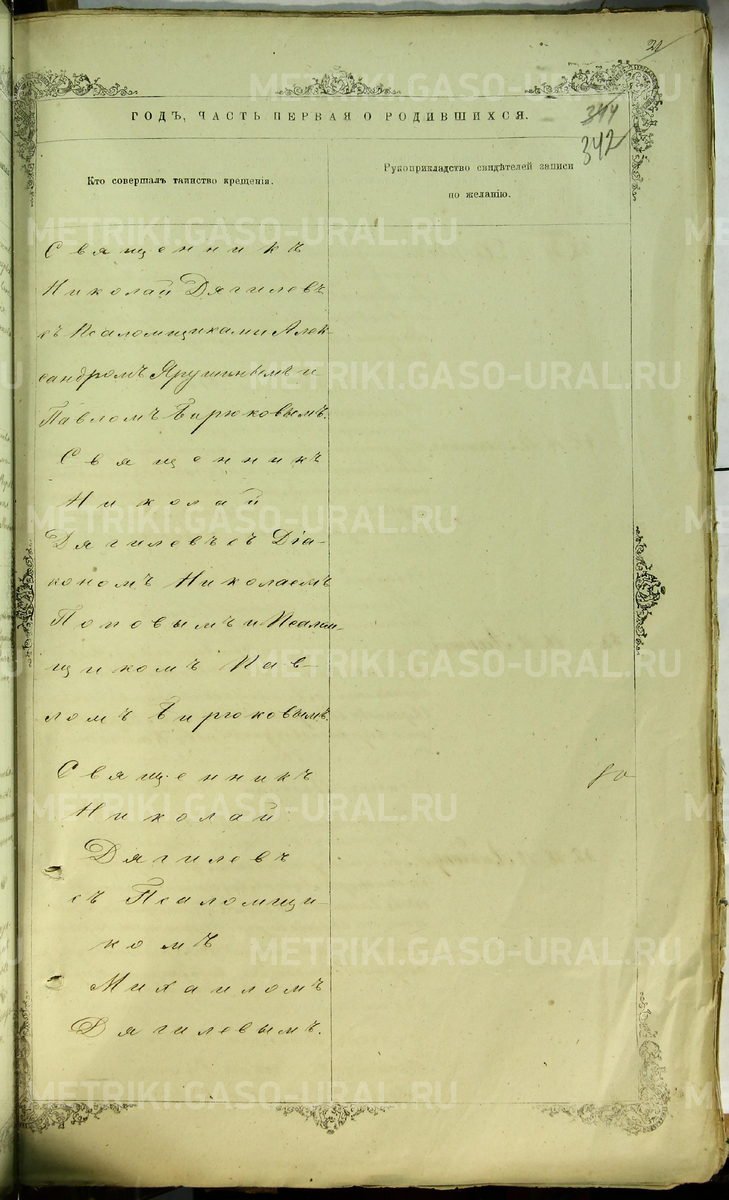 21
ГОДЪ, ЧАСТЬ ПЕРВАЯ О РОДИВШИХСЯ.
344
342
Кто совершалъ таинство крещенія.
Рукоприкладство свидѣтелей записи
по желанію.
Священникъ
Николай Дягилевъ
съ Псаломщиками Алек-
сандромъ Ярушинымъ и
Павломъ Бирюковымъ.
Священникъ
Николай
Дягилевъ съ Діа-
кономъ Николаемъ
Поповымъ и Псалом-
щикомъ Пав-
ломъ Бирюковымъ.
Священникъ
Николай
Дягилевъ
съ Псаломщи-
комъ
Михаиломъ
Дягилевымъ.
METRIKI.GASO-URAL.RU